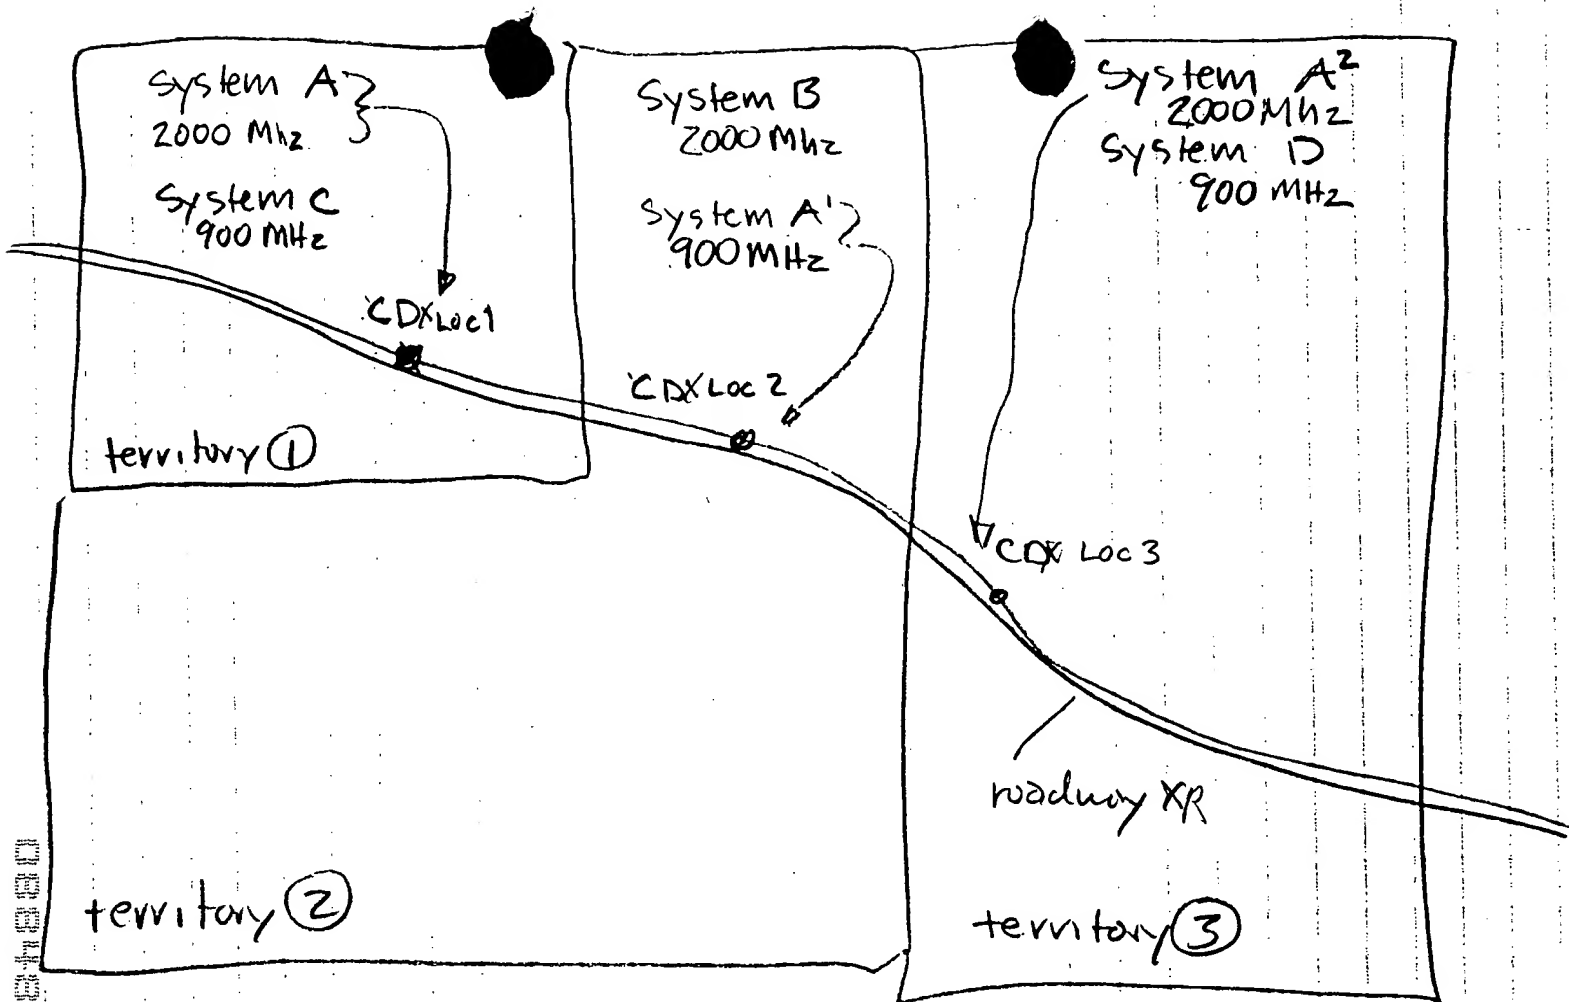 System A
2000 Mhz
System C
900 MHz
CDX Loc1
territory 1
System B
2000 Mhz
System A'
900 MHz
CDX Loc 2
territory 2
System A²
2000 Mhz
System D
900 MHz
CDX Loc 3
roadway XR
territory 3